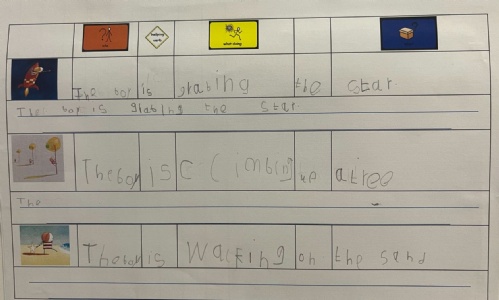 The boy is grabing the star.
The boy is grabing the star.
The boy is climbing up a tree
The
The boy is Walking on the sand